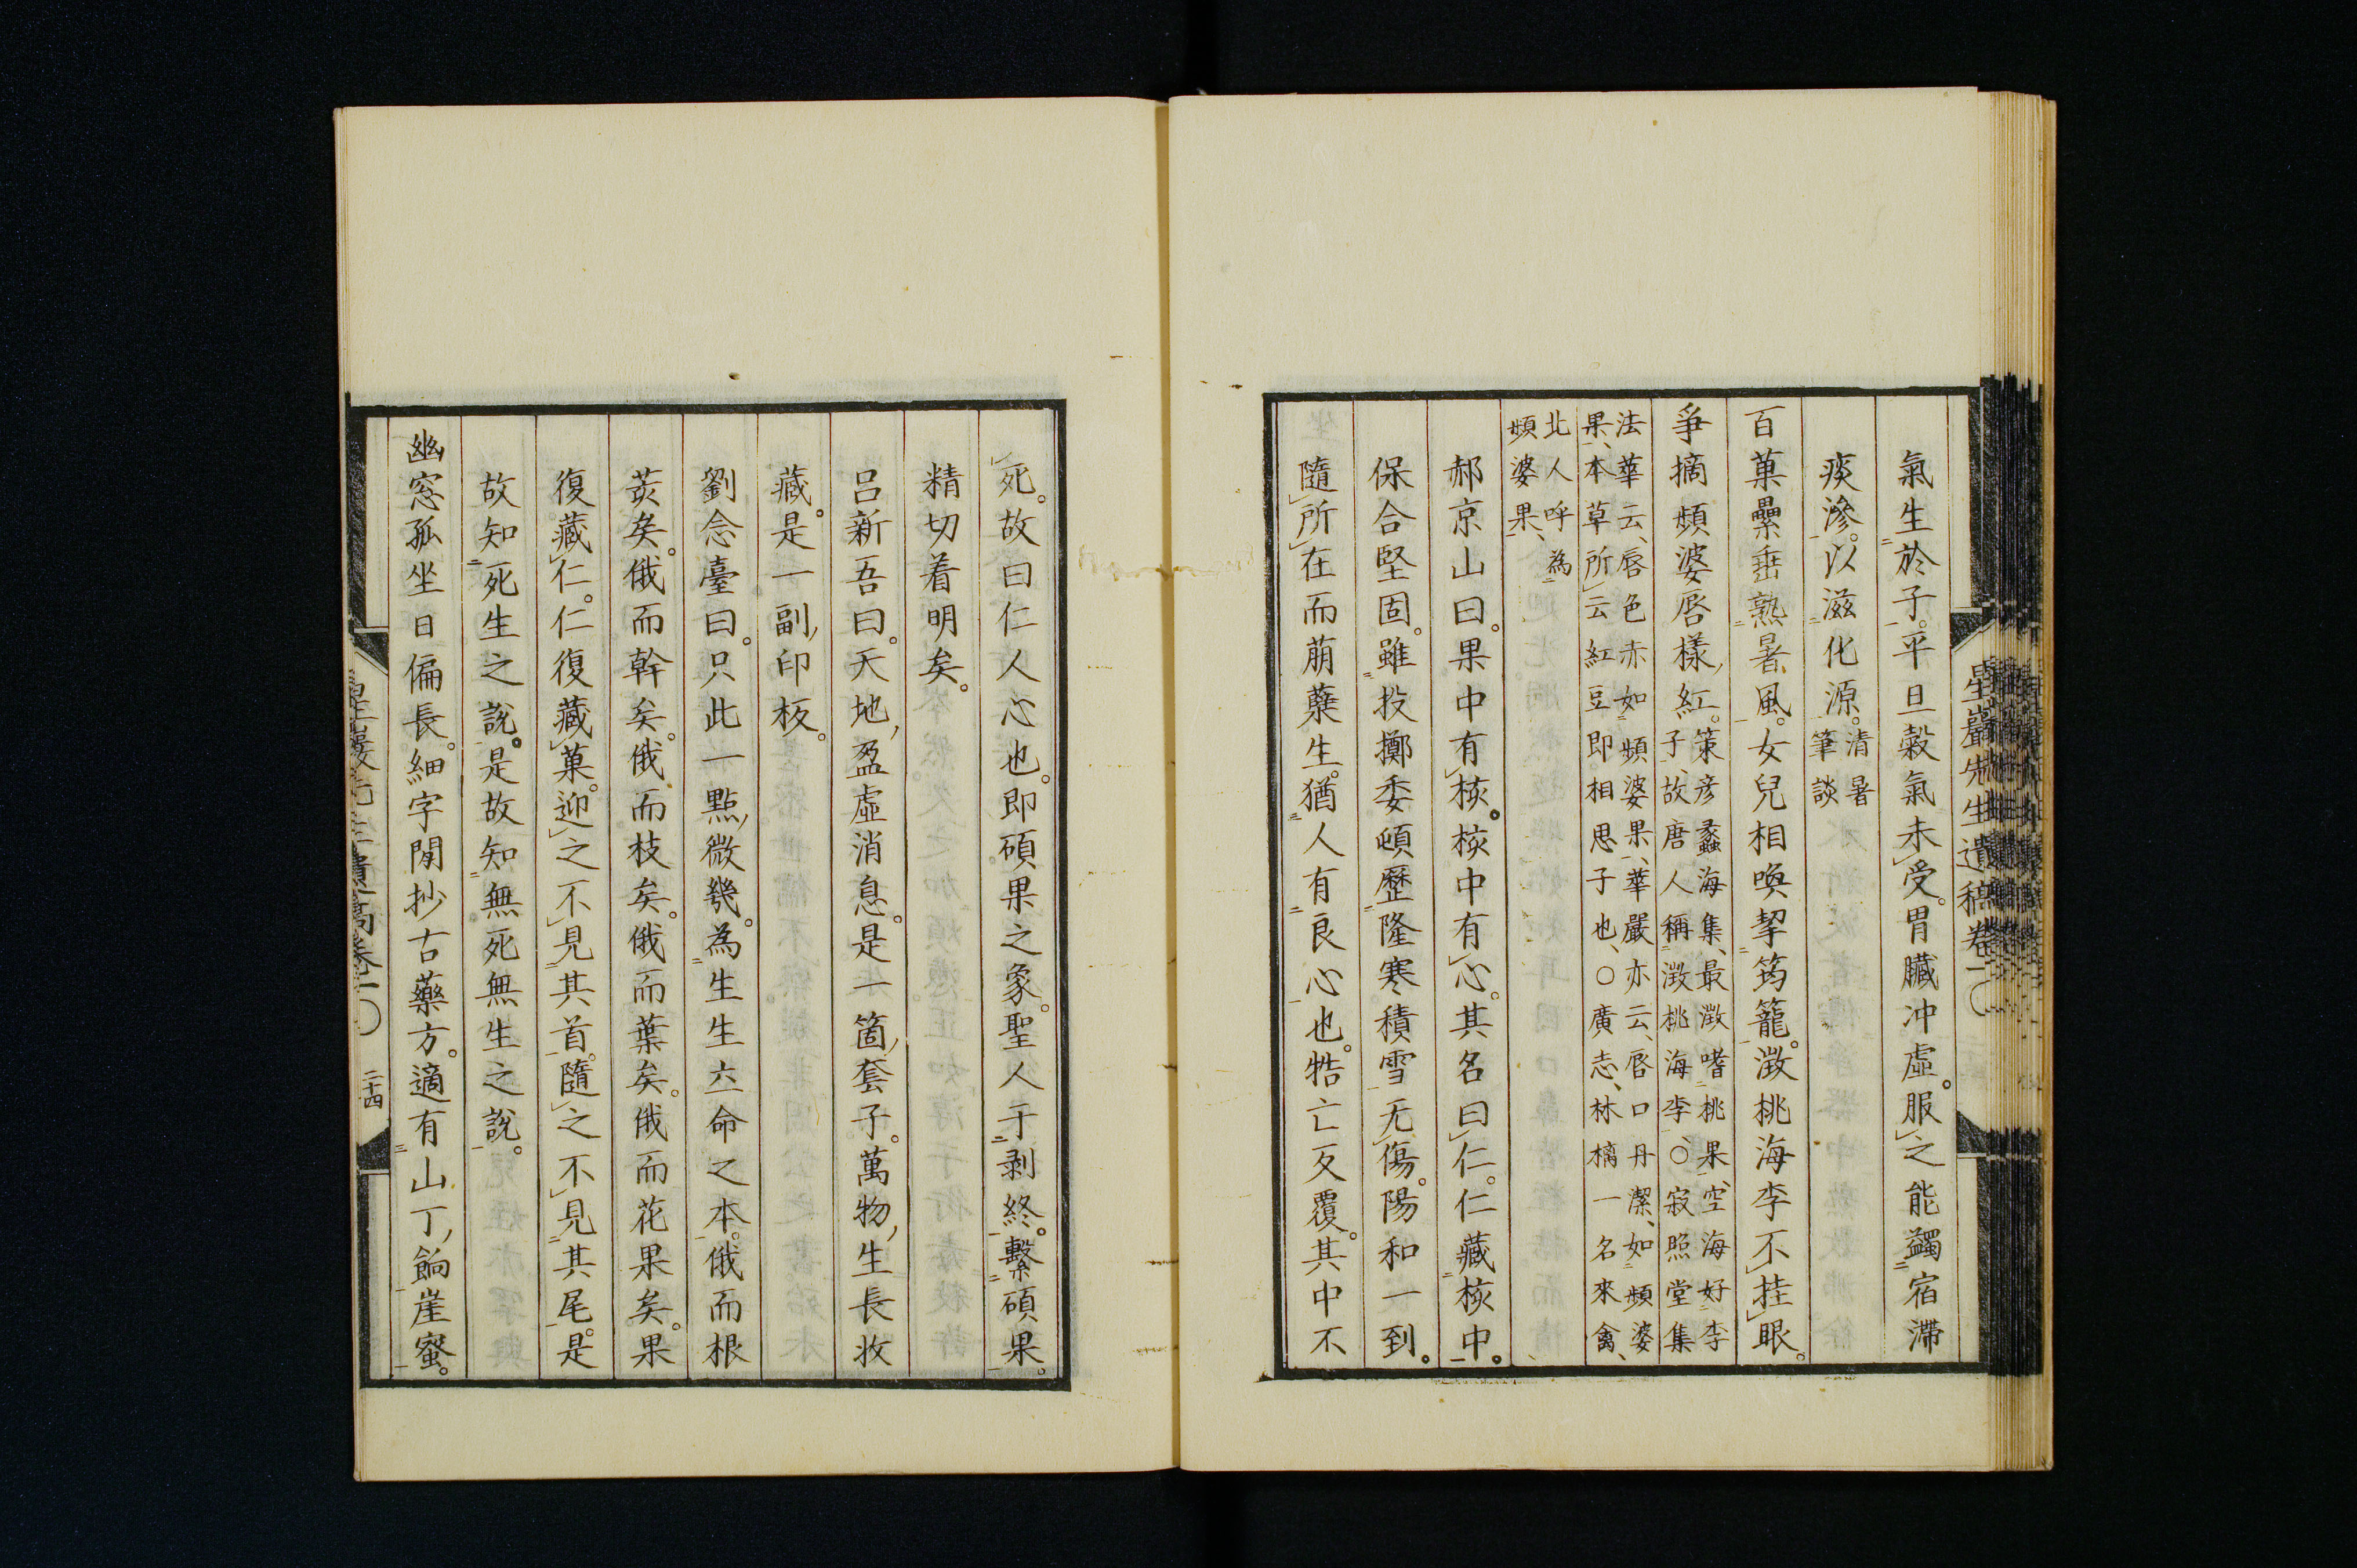 氣生於子。平旦穀氣未受。胃臟冲虛。服之能蠲宿滯
痰滲。以滋化源。清暑筆談
百菓纍垂熟暑風。女兒相喚挈筠籠。澂桃海李不挂眼。
爭摘頻婆唇樣紅。策彦蠡海集、最澂嗜桃果、空海好李
子、故唐人稱澂桃海李、○寂照堂集
法華云、唇色赤如頻婆果、華嚴亦云、唇口丹潔、如頻婆
果、本草所云紅豆即相思子也、○廣志、林檎一名來禽、
北人呼為
頻婆果、
郝京山曰。果中有核。核中有心。其名曰仁。仁藏核中。
保合堅固。雖投擲委頓歷隆寒積雪无傷。陽和一到。
隨所在而萠蘖生。猶人有良心也。牿亡反覆。其中不
死。故曰仁人心也。即碩果之象。聖人于剥終。繫碩果。
精切着明矣。
呂新吾曰。天地盈虛消息。是一箇套子。萬物生長收
藏。是一副印板。
劉念臺曰。只此一點微幾。為生生立命之本。俄而根
荄矣。俄而幹矣。俄而枝矣。俄而葉矣。俄而花果矣。果
復藏仁。仁復藏菓。迎之不見其首。隨之不見其尾。是
故知死生之說。是故知無死無生之說。
幽窓孤坐日偏長。細字閒抄古藥方。適有山丁餉崖蜜。
星巖先生遺稿卷一
二十四